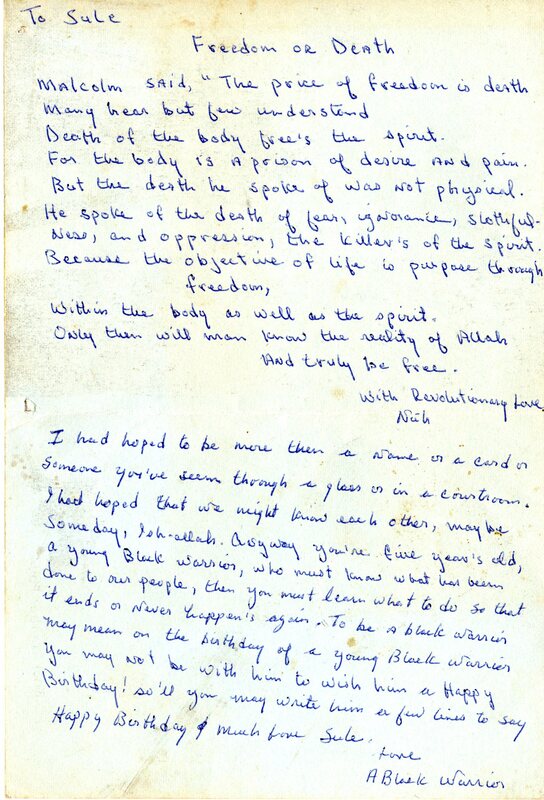 To Sule
Freedom or Death
Malcolm said, "The price of freedom is death
Many hear but few understand
Death of the body free's the spirit.
For the body is a prison of desire and pain.
But the death he spoke of was not physical.
He spoke of the death of fear, ignorance, slothful-
ness, and oppression, the killer's of the spirit.
Because the objective of life is purpose through
freedom,
Within the body as well as the spirit.
Only then will man know the reality of Allah
And truly be free.
With Revolutionary Love,
Nuh
I had hoped to be more then a name or a card or
someone you've seem through a glass or in a courtroom.
I had hoped that we might know each other, maybe
someday, Ish-allah. Anyway you're five year's old,
a young Black warrior, who must know what has been
done to our people, then you must learn what to do so that
it ends or never happen's again. To be a black warrior
may mean on the birthday of a young Black warrior
you may not be with him to wish him a Happy
Birthday! so'll you may write him a few lines to say
Happy Birthday & much love Sule.
Love
A Black Warrior